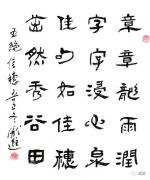 章章龍雨潤
字字浸心泉
佳句如佳穗
茁然秀谷田
五絕佳穗